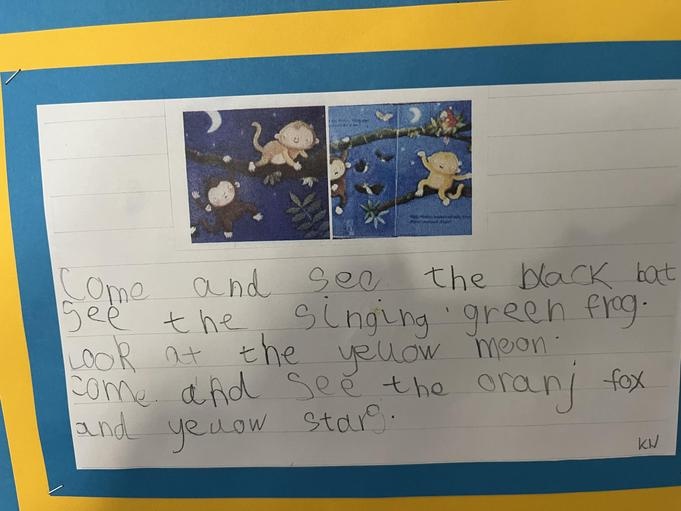 Come and see the black bat
See the singing green frog.
Look at the yellow moon.
Come and see the oranj fox
and yellow stars.
KW